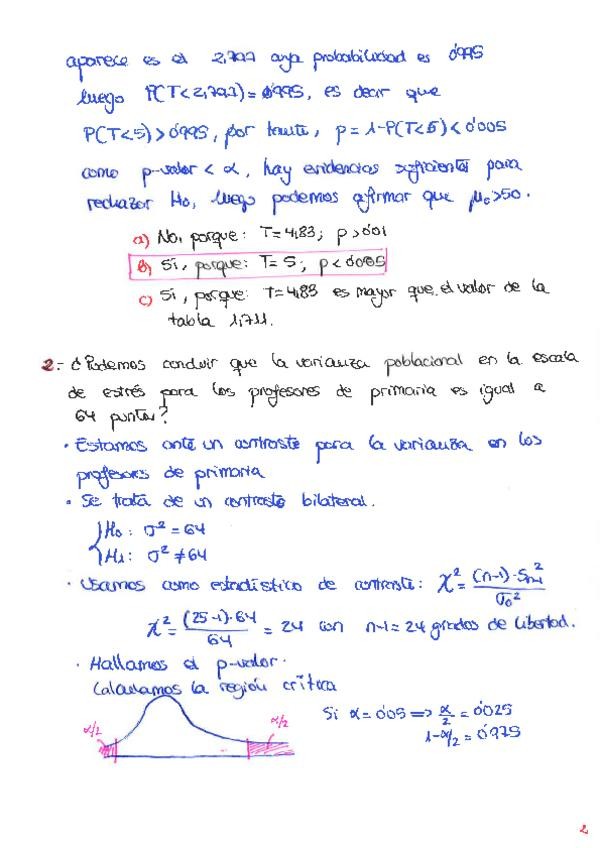 aparece es el 2,797 cuya probabilidad es 0'995
luego P(T<2,797) = 0'995, es decir que
P(T<5) > 0'995, por tanto, p = 1-P(T<5) < 0'005
como p-valor < α, hay evidencias suficientes para
rechazar H₀, luego podemos afirmar que μ₀>50.
a) No, porque: T=4,83; p>0'01
b) Si, porque: T=5; p<0'005
c) Si, porque: T=4,83 es mayor que el valor de la
tabla 1,711.
2.- ¿Podemos concluir que la varianza poblacional en la escala
de estrés para los profesores de primaria es igual a
64 puntos?
· Estamos ante un contraste para la varianza en los
profesores de primaria
· Se trata de un contraste bilateral.
H₀: σ² = 64
H₁: σ² ≠ 64
· Usamos como estadístico de contraste: χ² = (n-1)·S²ₙ₋₁/σ₀²
χ² = (25-1)·64/64 = 24 con n-1 = 24 grados de libertad.
· Hallamos el p-valor.
Calculamos la región crítica
α/2 α/2 Si α = 0'05 ⟹ α/2 = 0'025
1-α/2 = 0'975
2